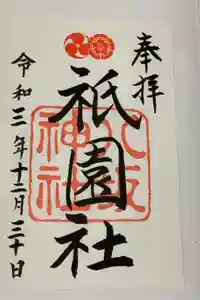 奉拝
祇園社
八坂神社
令和三年十二月三十日